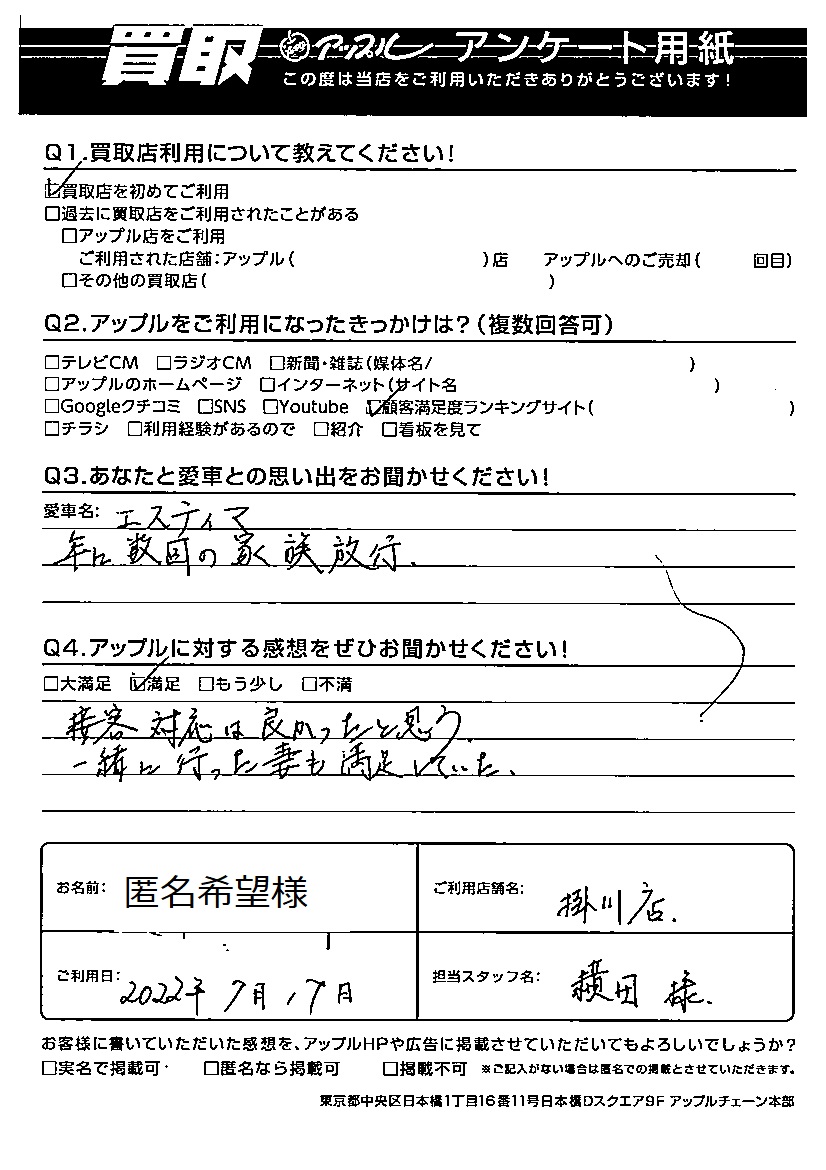 買取 アップル アンケート用紙
この度は当店をご利用いただきありがとうございます!
Q1.買取店利用について教えてください!
☑買取店を初めてご利用
□過去に買取店をご利用されたことがある
□アップル店をご利用
ご利用された店舗:アップル( )店 アップルへのご売却( 回目)
□その他の買取店( )
Q2.アップルをご利用になったきっかけは?(複数回答可)
□テレビCM □ラジオCM □新聞・雑誌(媒体名/ )
□アップルのホームページ □インターネット(サイト名 )
□Googleクチコミ □SNS □Youtube ☑顧客満足度ランキングサイト( )
□チラシ □利用経験があるので □紹介 □看板を見て
Q3.あなたと愛車との思い出をお聞かせください!
愛車名: エスティマ
年に数回の家族放行.
Q4.アップルに対する感想をぜひお聞かせください!
□大満足 ☑満足 □もう少し □不満
接客対応は良かったと思う.
一緒に行った妻も満足していた.
お名前: 匿名希望様
ご利用店舗名: 掛川店.
ご利用日: 2022年7月17日
担当スタッフ名: 横田様.
お客様に書いていただいた感想を、アップルHPや広告に掲載させていただいてもよろしいでしょうか?
□実名で掲載可 □匿名なら掲載可 □掲載不可 ※ご記入がない場合は匿名での掲載とさせていただきます。
東京都中央区日本橋1丁目16番11号日本橋Dスクエア9F アップルチェーン本部